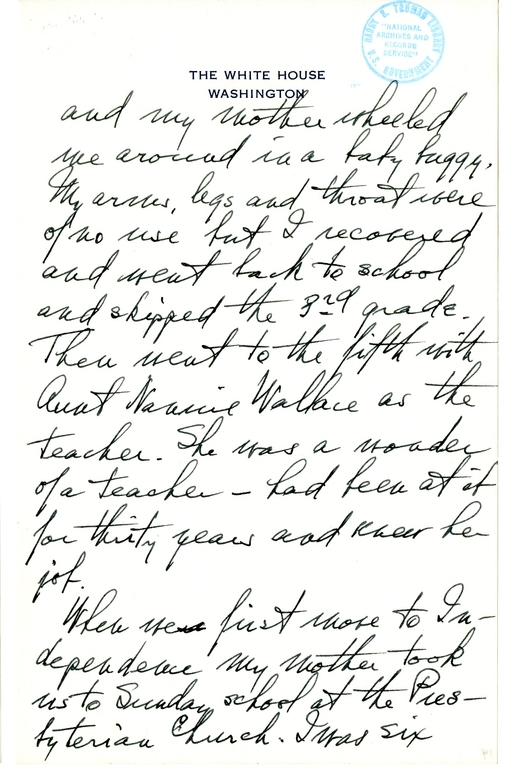 HARRY S. TRUMAN LIBRARY
"NATIONAL
ARCHIVES AND
RECORDS
SERVICE"
U.S. GOVERNMENT
THE WHITE HOUSE
WASHINGTON
and my mother wheeled
me around in a baby buggy.
My arms, legs and throat were
of no use but I recovered
and went back to school
and skipped the 3rd grade.
Then went to the fifth with
Aunt Nannie Wallace as the
teacher. She was a wonder
of a teacher – had been at it
for thirty years and knew her
job.
When we first move to In-
dependence my mother took
us to Sunday school at the Pres-
byterian Church. I was six